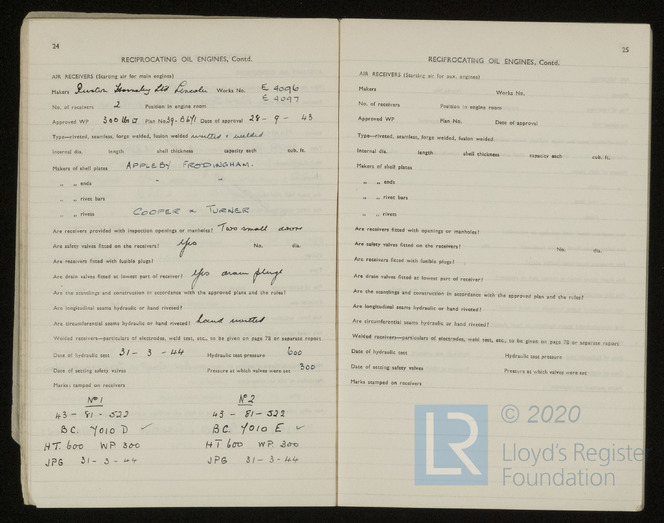 24
RECIPROCATING OIL ENGINES, Contd.
AIR RECEIVERS (Starting air for main engines)
Makers Ruston Hornsby Ltd Lincoln Works No. E 4096
E 4097
No. of receivers 2 Position in engine room
Approved WP 300 lbs □" Plan No. 39-8671 Date of approval 28 - 9 - 43
Type—riveted, seamless, forge welded, fusion welded riveted & welded
Internal dia. length shell thickness capacity each cub. ft.
Makers of shell plates APPLEBY FRODINGHAM.
" " ends " "
" " rivet bars
" " rivets COOPER & TURNER
Are receivers provided with inspection openings or manholes? Two small doors
Are safety valves fitted on the receivers? Yes No. dia.
Are receivers fitted with fusible plugs?
Are drain valves fitted at lowest part of receiver? Yes drain plugs
Are the scantlings and construction in accordance with the approved plans and the rules?
Are longitudinal seams hydraulic or hand riveted?
Are circumferential seams hydraulic or hand riveted? hand riveted
Welded receivers—particulars of electrodes, weld test, etc., to be given on page 78 or separate report
Date of hydraulic test 31 - 3 - 44 Hydraulic test pressure 600
Date of setting safety valves Pressure at which valves were set 300
Marks stamped on receivers
No 1 No 2
43 - 81 - 522 43 - 81 - 522
BC. 4010 D ✓ BC. 4010 E ✓
HT. 600 WP. 300 HT 600 WP. 300
JPG 31 - 3 - 44 JPG 31 - 3 - 44
25
RECIPROCATING OIL ENGINES, Contd.
AIR RECEIVERS (Starting air for aux. engines)
Makers Works No.
No. of receivers Position in engine room
Approved WP Plan No. Date of approval
Type—riveted, seamless, forge welded, fusion welded
Internal dia. length shell thickness capacity each cub. ft.
Makers of shell plates
" " ends
" " rivet bars
" " rivets
Are receivers fitted with openings or manholes?
Are safety valves fitted on the receivers? No. dia.
Are receivers fitted with fusible plugs?
Are drain valves fitted at lowest part of receiver?
Are the scantlings and construction in accordance with the approved plan and the rules?
Are longitudinal seams hydraulic or hand riveted?
Are circumferential seams hydraulic or hand riveted?
Welded receivers—particulars of electrodes, weld test, etc., to be given on page 78 or separate report
Date of hydraulic test Hydraulic test pressure
Date of setting safety valves Pressure at which valves were set
Marks stamped on receivers
LR
© 2020
Lloyd's Register
Foundation